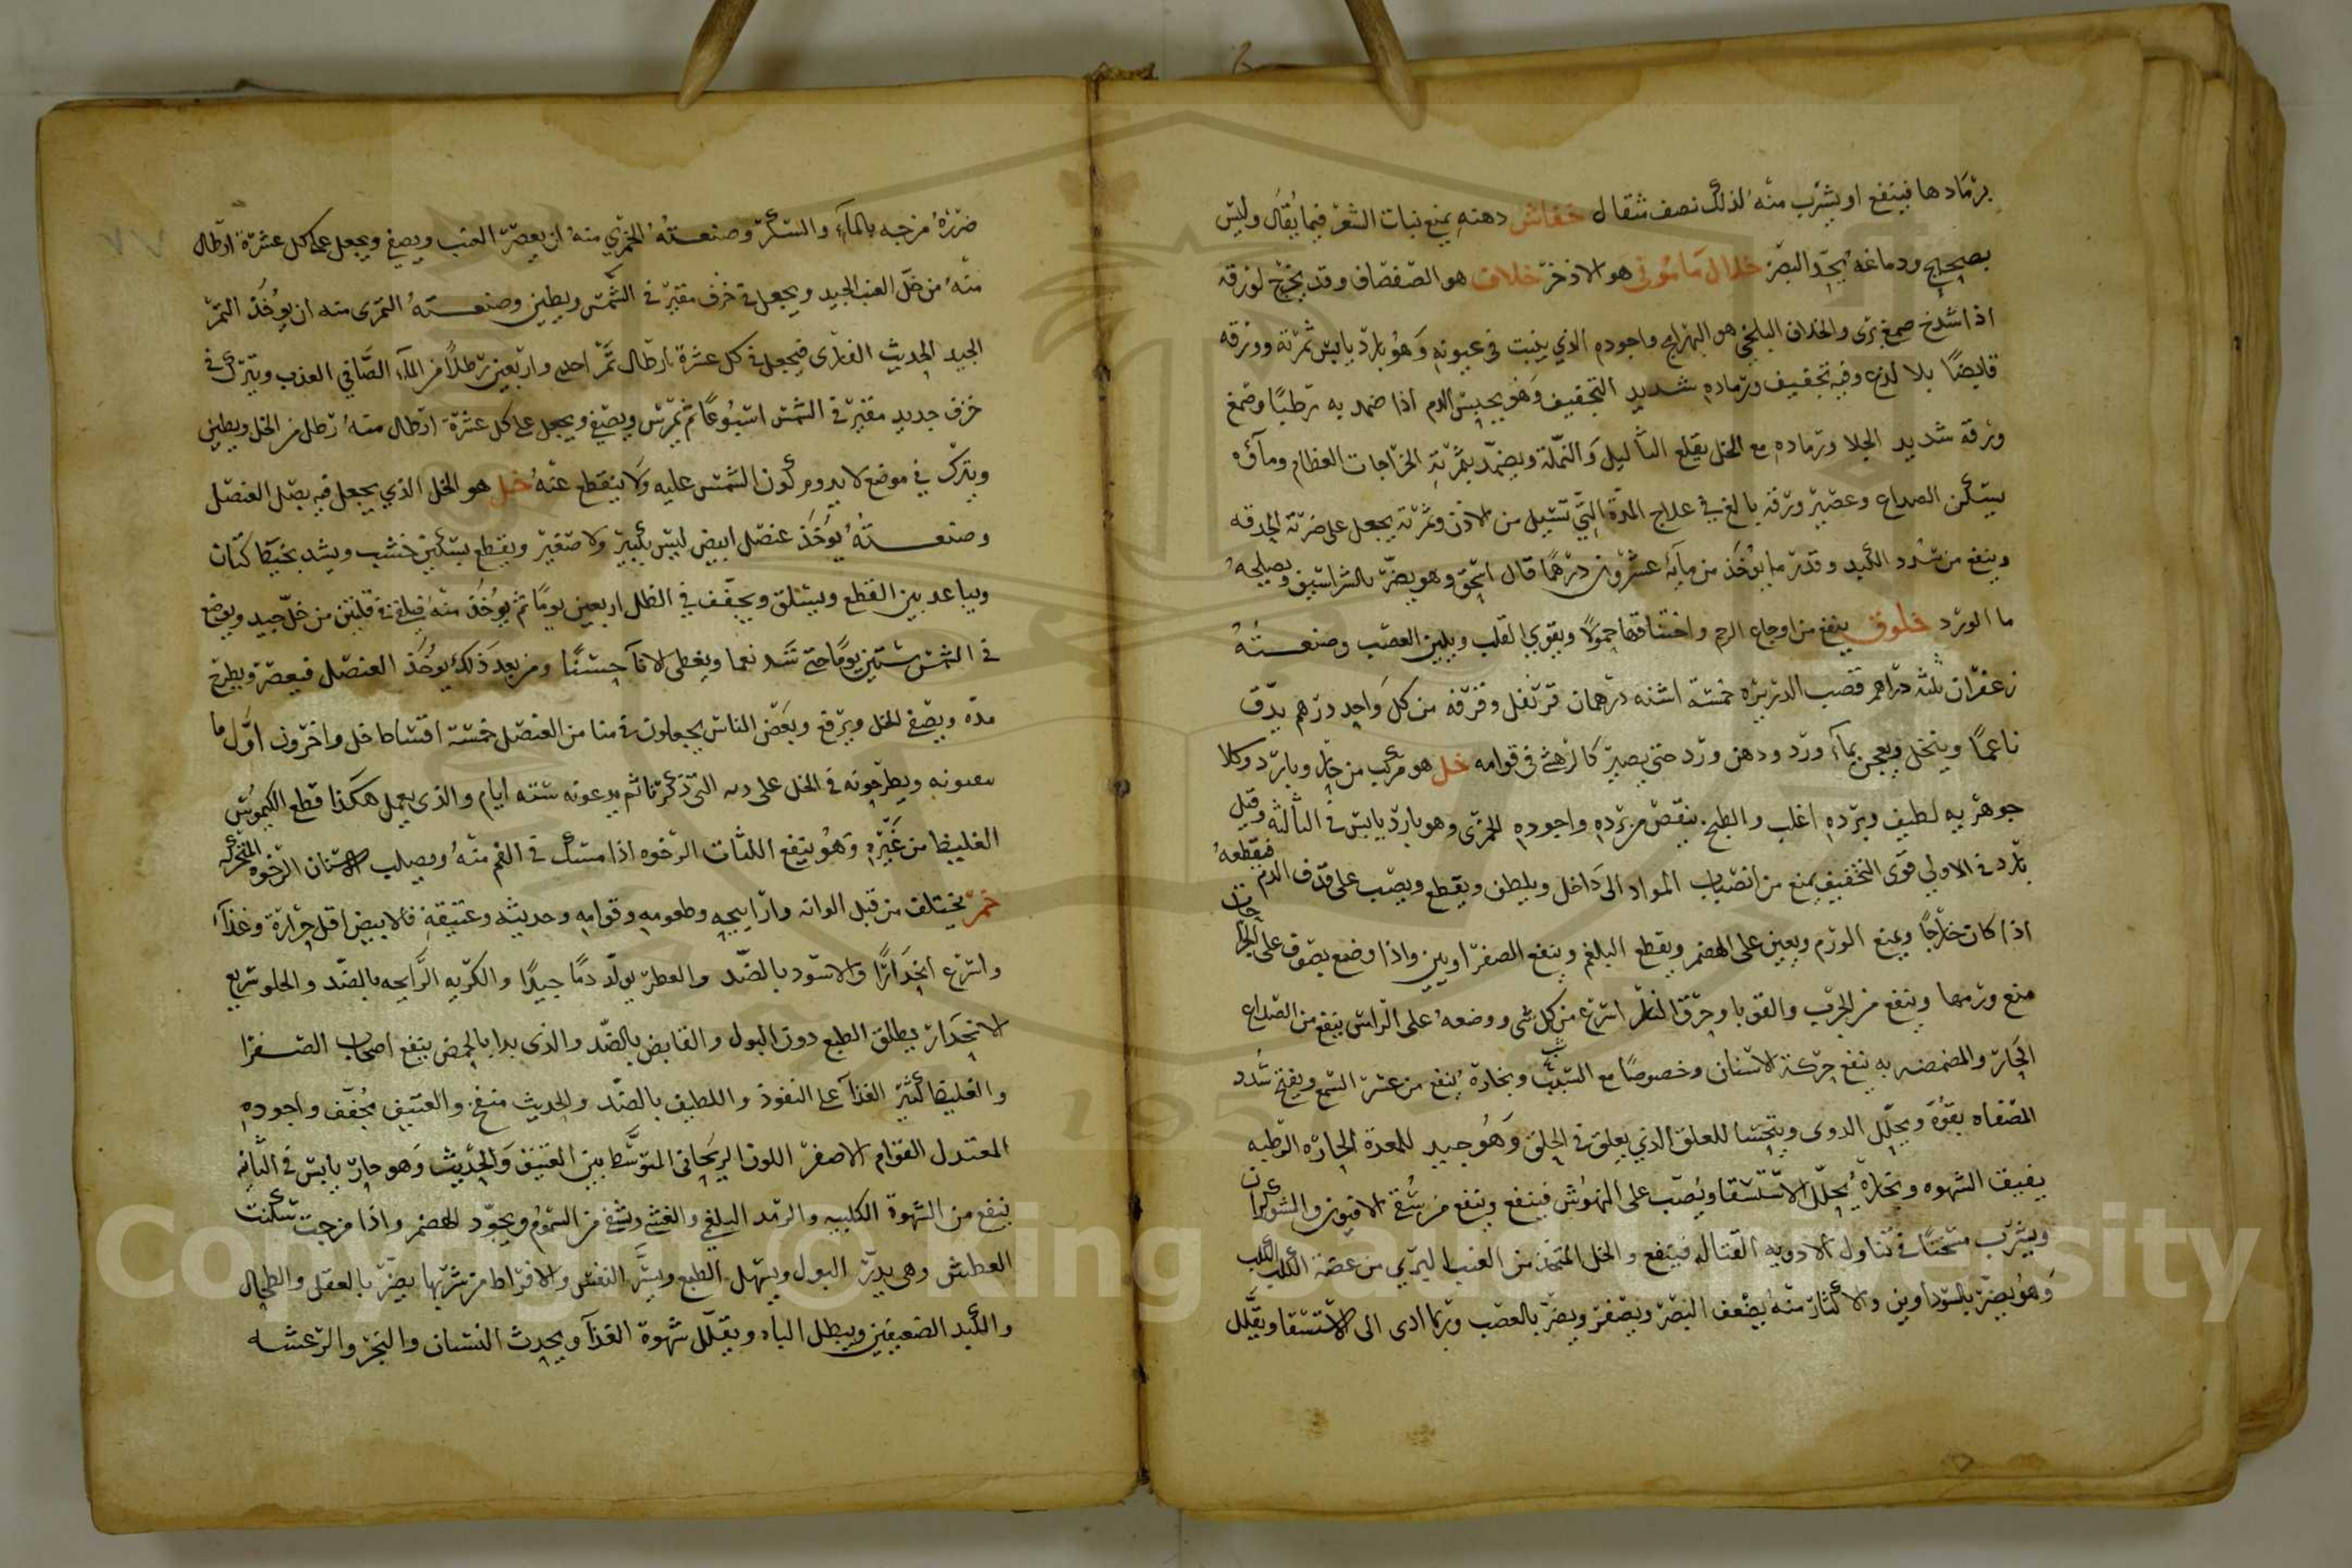 برمادها فينفع او يشرب منه لذلك نصف مثقال خفاش دهنه يمنع نبات الشعر فيما يقال وليس
بصحيح ودماغه يحد البصر خلال مامونى هو الاذخر خلاف هو الصفصاف وقد يخرج لورقه
اذا شدخ صمغ برى والخلاف البلخى هو البهرامج واجوده الذي ينبت في عيونه وهو بارد يابس ثمرته وورقه
قابضا بلا لذع وفيه تجفيف ورماده شديد التجفيف وهو يحبس الدم اذا ضمد به رطبا وصمغ
ورقه شديد الجلا ورماده مع الخل يقلع الثاليل والنملة ويضمد بثمرته الخراجات العظام وماؤه
يسكن الصداع وعصير ورقه بالغ في علاج المدة التي تسيل من الاذن وثمرته يجعل على ضربة الحدقه
وينفع من سدد الكبد وقدر ما يؤخذ من مآئه عشرون درهما قال اسحق وهو يضر بالشراسيف ويصلحه
ما الورد خلوق ينفع من اوجاع الرحم واختناقها حمولا ويقوي القلب ويلين العصب وصنعته
زعفران ثلثه دراهم قصب الدريره خمسة اشنه درهمان قرنفل وقرفه من كل واحد درهم يدق
ناعما وينخل ويعجن بمآء ورد ودهن ورد حتى يصير كالرهشى في قوامه خل هو مركب من حار وبارد وكلا
جوهريه لطيف وبرده اغلب والطبخ ينقص من برده واجوده الخمرى وهو بارد يابس في الثالثه وقيل
بارد في الاولى قوى التخفيف يمنع من انصباب المواد الى داخل ويلطف ويقطع ويصب على قذف الدم فيقطعه
اذا كان خارجا ويمنع الورم ويعين على الهضم ويقطع البلغم وينفع الصفراويين واذا وضع بصوف على الجراحات
منع ورمها وينفع من الجرب والقوبا وحرق النار اسرع من كل شى ووضعه على الراس ينفع من الصداع
الحار والمضمضه به تنفع حركة الاسنان وخصوصا مع الشب وبخاره ينفع من عسر السمع ويفتح سدد
المصفاه بقوة ويحلل الدوى ويتحسا للعلق الذي يعلق في الحلق وهو جيد للمعدة الحاره الرطبه
يفيق الشهوه وبخاره يحلل الاستسقا ويصب على النهوش فينفع وينفع من سقى الافيون والشوكران
ويشرب مسخنا في تناول الادويه القتاله فينفع والخل المتخذ من العنب البرى من عضة الكلب الكلب
وهو يضر بالسوداوين والاكثار منه يضعف البصر ويصفر ويضر بالعصب وربما ادى الى الاستسقا ويقلل
ضرره مزجه بالمآء والسكر وصنعته الخمري منه ان يعصر العنب ويصفى ويجعل على كل عشرة ارطال
منه من خل العنب الجيد ويجعل في خزف مقير في الشمس ويطين وصنعته التمرى منه ان يؤخذ التمر
الجيد الحديث فيجعل في كل عشرة ارطال تمر احد واربعين رطلا من المآء الصافي العذب ويترك في
خزف جديد مقير في الشمس اسبوعا ثم يمرس ويصفى ويجعل على كل عشرة ارطال منه رطل من الخل ويطين
ويترك في موضع لا يدوم كون الشمس عليه ولا ينقطع عنه خل هو الخل الذي يجعل فيه بصل العنصل
وصنعته يؤخذ عنصل ابيض ليس بكبير ولا صغير ويقطع بسكين خشب ويشد بخيط كتان
ويباعد بين القطع ويجفف في الظل اربعين يوما ثم يؤخذ منه فيلقى في من خل جيد ويوضع
في الشمس ستين يوما حتى ويغطى الانآ حسنا ومن بعد ذلك يؤخذ العنصل فيعصر ويطرح
ويصفى الخل ويرفع وبعض الناس يجعلون في منا من العنصل خمسة اقساط خل واخرون اول ما
ويطرحونه في الخل على التى ذكرنا ثم يدعونه سته ايام والذى يعمل هكذا قطع الكيموس
الغليظ من غيره وهو ينفع اللثات الرخوه اذا مسك في الفم منه ويصلب الاسنان الرخوه المتحركه
خمر يختلف من قبل الوانه ورايحه وطعومه وقوامه وحديثه وعتيقه فالابيض اقل حرارة وغذآء
واسرع انحدارا والاسود بالضد والعطر يولد دما جيدا والكريه الرايحه بالضد والحلو سريع
الانحدار يطلق الطبع دون البول والقابض بالضد والذى بدا بالحمض ينفع اصحاب الصفرا
والغليظ كثير الغذآ على النفوذ واللطيف بالضد والحديث منفخ والعتيق مجفف واجوده
المعتدل القوام الاصفر اللون الريحانى المتوسط بين العتيق والحديث وهو حار يابس في الثانيه
ينفع من الشهوة الكلبيه والرمد البلغمي والغشى ويشفى من السموم ويجود الهضم واذا مزجت سكنت
العطش وهى يدر البول ويسهل الطبع ويسر النفس والافراط من شربها يضر بالعقل والطحال
والكبد الضعيفين ويبطل الباه ويقلل شهوة الغذآ ويحدث النسيان والبخر والرعشه